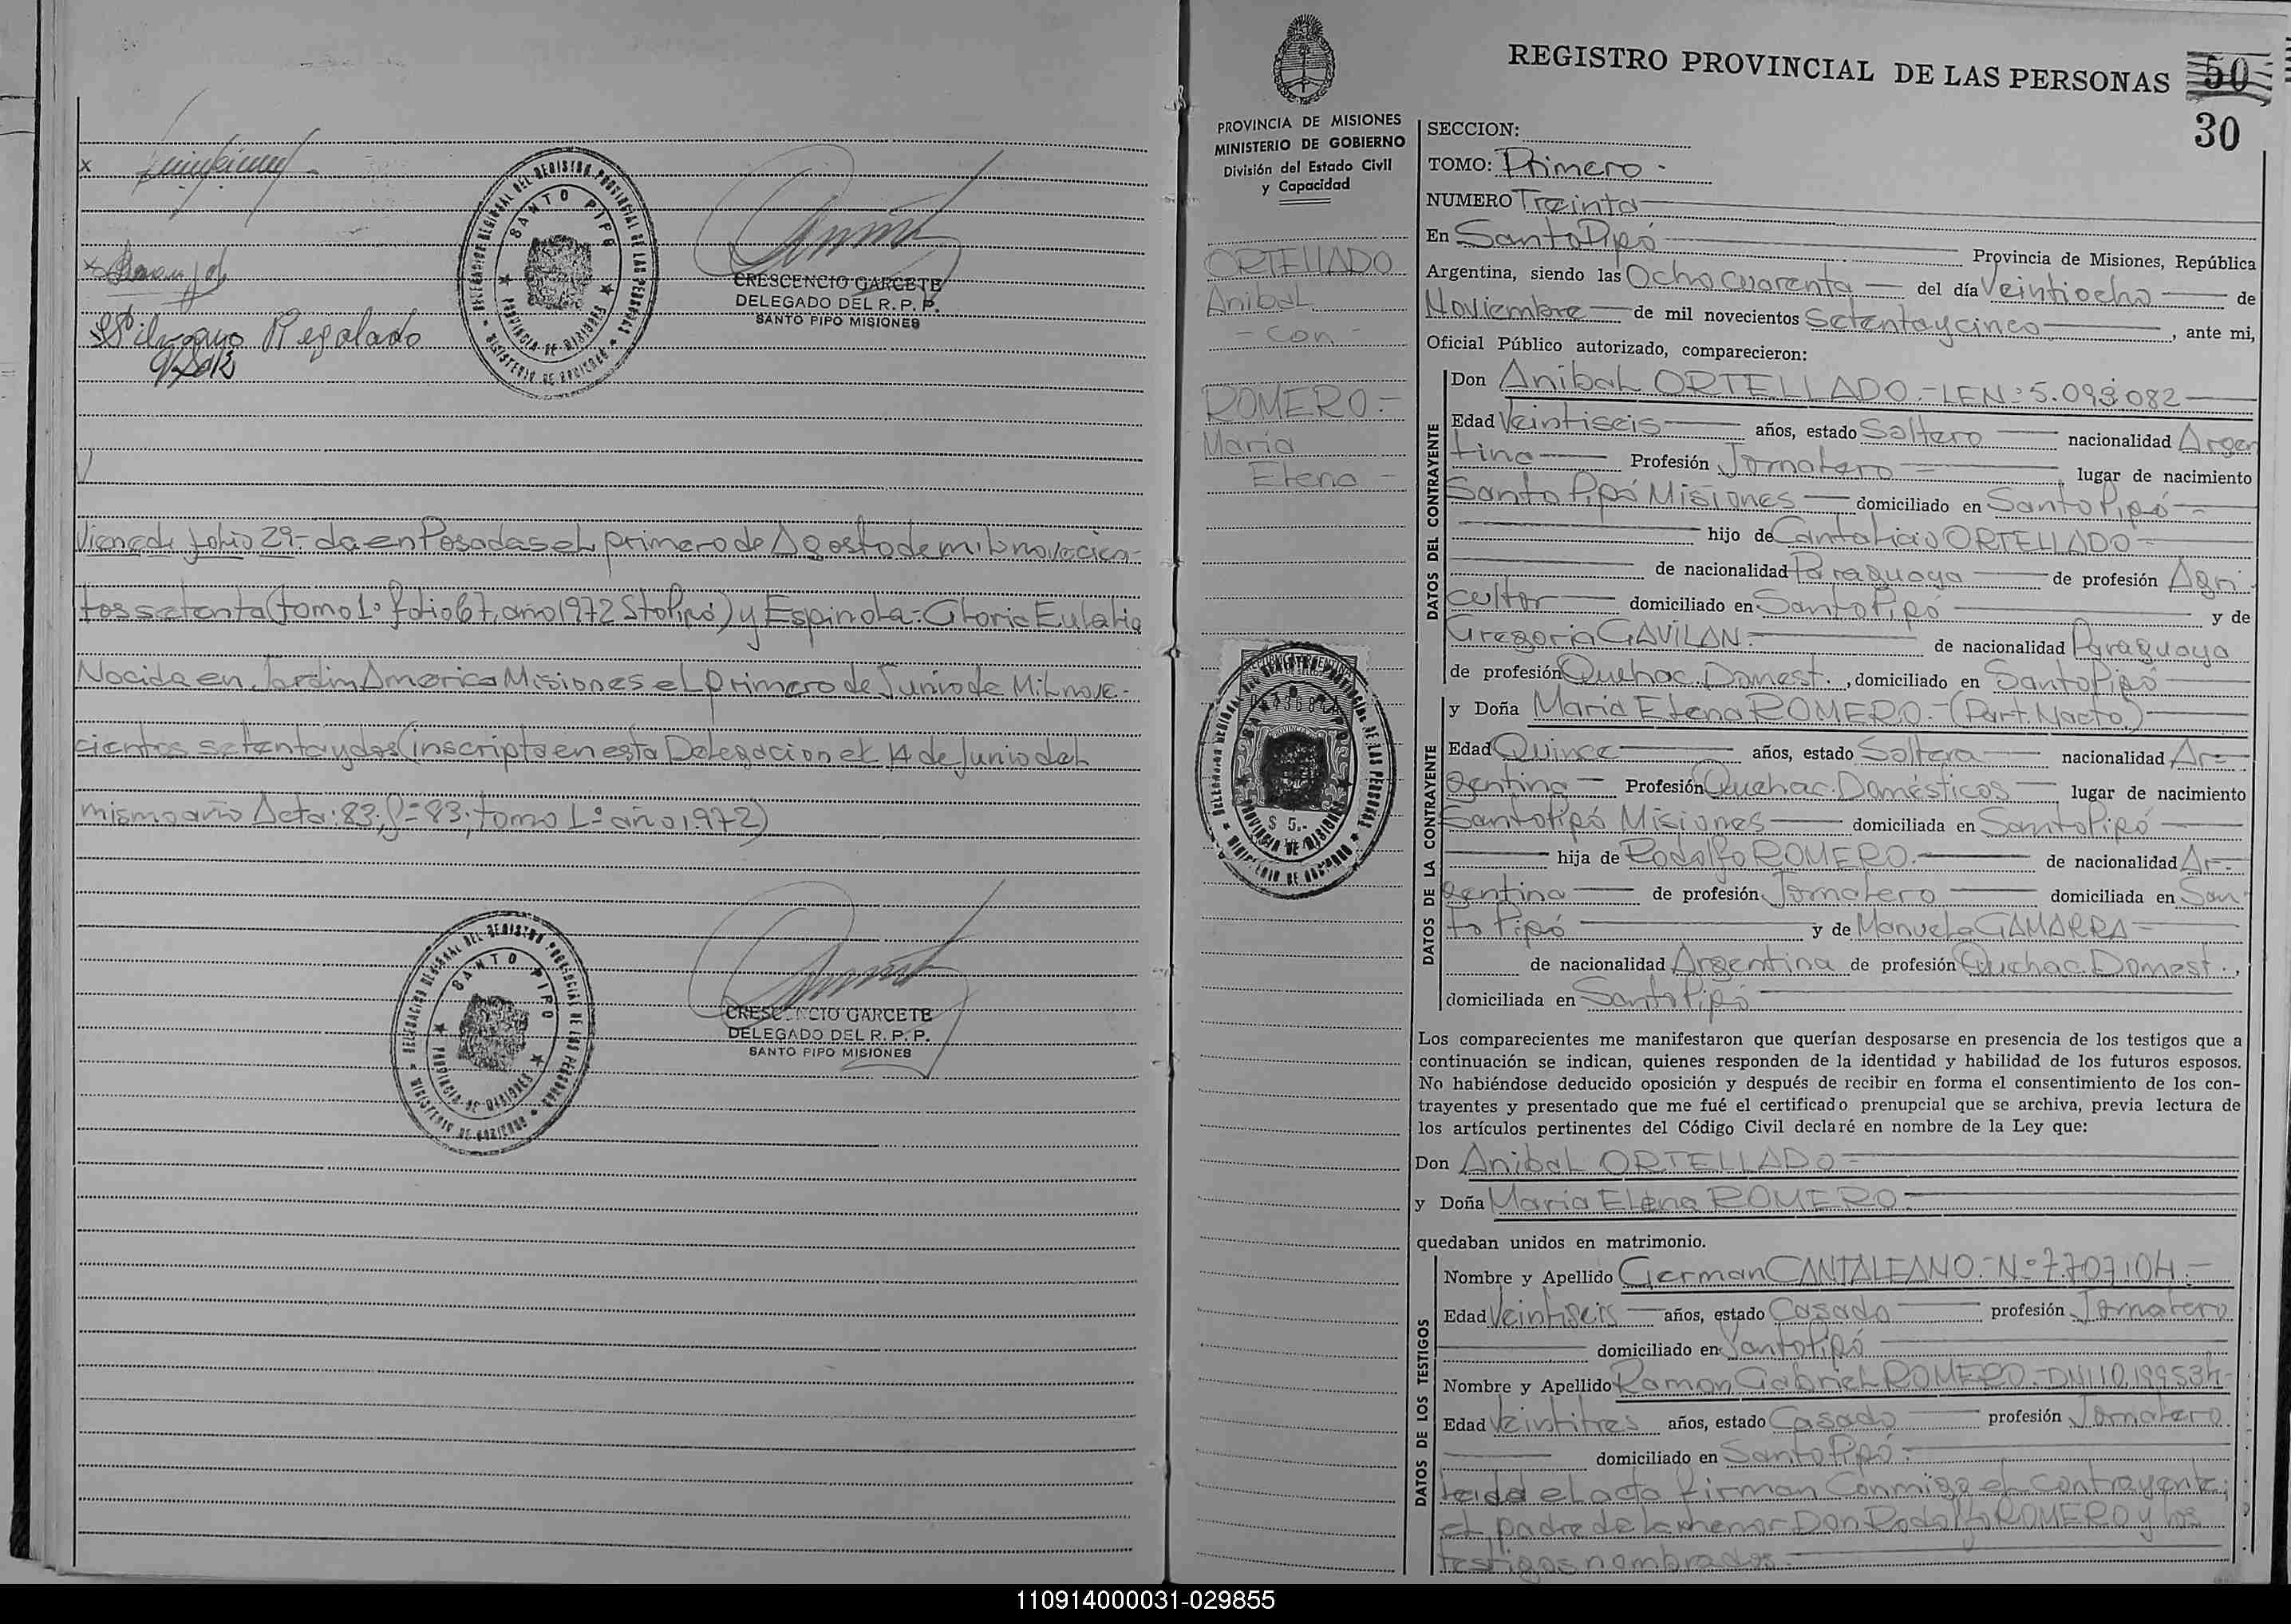 Pilingayo Regalado
CRESCENCIO GARCETE
DELEGADO DEL R. P. P.
SANTO PIPO MISIONES
DELEGACION REGIONAL DEL REGISTRO PROVINCIAL DE LAS PERSONAS
SANTO PIPO
PROVINCIA DE MISIONES
MINISTERIO DE GOBIERNO
Viene de folio 29.- da en Posadas el primero de Agosto de mil novecien-
tos setenta (tomo 1º folio 67, año 1972 Sto Pipó) y Espinola: Gloria Eulalia
Nacida en Jardin America Misiones el primero de Junio de Mil nove-
cientos setenta y dos (inscripta en esta Delegacion el 14 de Junio del
mismo año Acta: 83, f= 83, tomo 1º año 1.972)
DELEGACION REGIONAL DEL REGISTRO PROVINCIAL DE LAS PERSONAS
SANTO PIPO
PROVINCIA DE MISIONES
MINISTERIO DE GOBIERNO
CRESCENCIO GARCETE
DELEGADO DEL R. P. P.
SANTO PIPO MISIONES
REGISTRO PROVINCIAL DE LAS PERSONAS 50
30
PROVINCIA DE MISIONES
MINISTERIO DE GOBIERNO
División del Estado Civil
y Capacidad
ORTELLADO
Anibal
- con -
ROMERO.-
María
Elena -
SANTO PIPO
$ 5.-
PROVINCIA DE MISIONES
SECCION:
TOMO: Primero.-
NUMERO Treinta
En Santo Pipó Provincia de Misiones, República
Argentina, siendo las Ocho cuarenta del día Veintiocho de
Noviembre de mil novecientos Setenta y cinco, ante mi,
Oficial Público autorizado, comparecieron:
DATOS DEL CONTRAYENTE
Don Anibal ORTELLADO.- LEN: 5.093.082
Edad Veintiseis años, estado Soltero nacionalidad Argen
tina Profesión Jornalero lugar de nacimiento
Santo Pipó Misiones domiciliado en Santo Pipó
hijo de Cantalicio ORTELLADO
de nacionalidad Paraguaya de profesión Agri
cultor domiciliado en Santo Pipó y de
Gregoria GAVILAN. de nacionalidad Paraguaya
de profesión Quehac. Domest., domiciliado en Santo Pipó
DATOS DE LA CONTRAYENTE
y Doña Maria Elena ROMERO.- (Part. Nacto.)
Edad Quince años, estado Soltera nacionalidad Ar-
gentina Profesión Quehac. Domésticos lugar de nacimiento
Santo Pipó Misiones domiciliada en Santo Pipó
hija de Rodolfo ROMERO.- de nacionalidad Ar-
gentina de profesión Jornalero domiciliada en San
to Pipó y de Manuela GAMARRA
de nacionalidad Argentina de profesión Quehac. Domest.,
domiciliada en Santo Pipó
Los comparecientes me manifestaron que querían desposarse en presencia de los testigos que a
continuación se indican, quienes responden de la identidad y habilidad de los futuros esposos.
No habiéndose deducido oposición y después de recibir en forma el consentimiento de los con-
trayentes y presentado que me fué el certificado prenupcial que se archiva, previa lectura de
los artículos pertinentes del Código Civil declaré en nombre de la Ley que:
Don Anibal ORTELLADO
y Doña Maria Elena ROMERO.
quedaban unidos en matrimonio.
DATOS DE LOS TESTIGOS
Nombre y Apellido German CANTALEANO.- Nº 7.707.104.-
Edad Veintiseis años, estado Casado profesión Jornalero
domiciliado en Santo Pipó
Nombre y Apellido Ramon Gabriel ROMERO.- DNI 10.199534-
Edad Veintitres años, estado Casado profesión Jornalero
domiciliado en Santo Pipó.
Leida el acta firman Conmigo el contrayente;
el padre de la menor Don Rodolfo ROMERO y los
testigos nombrados.
110914000031-029855